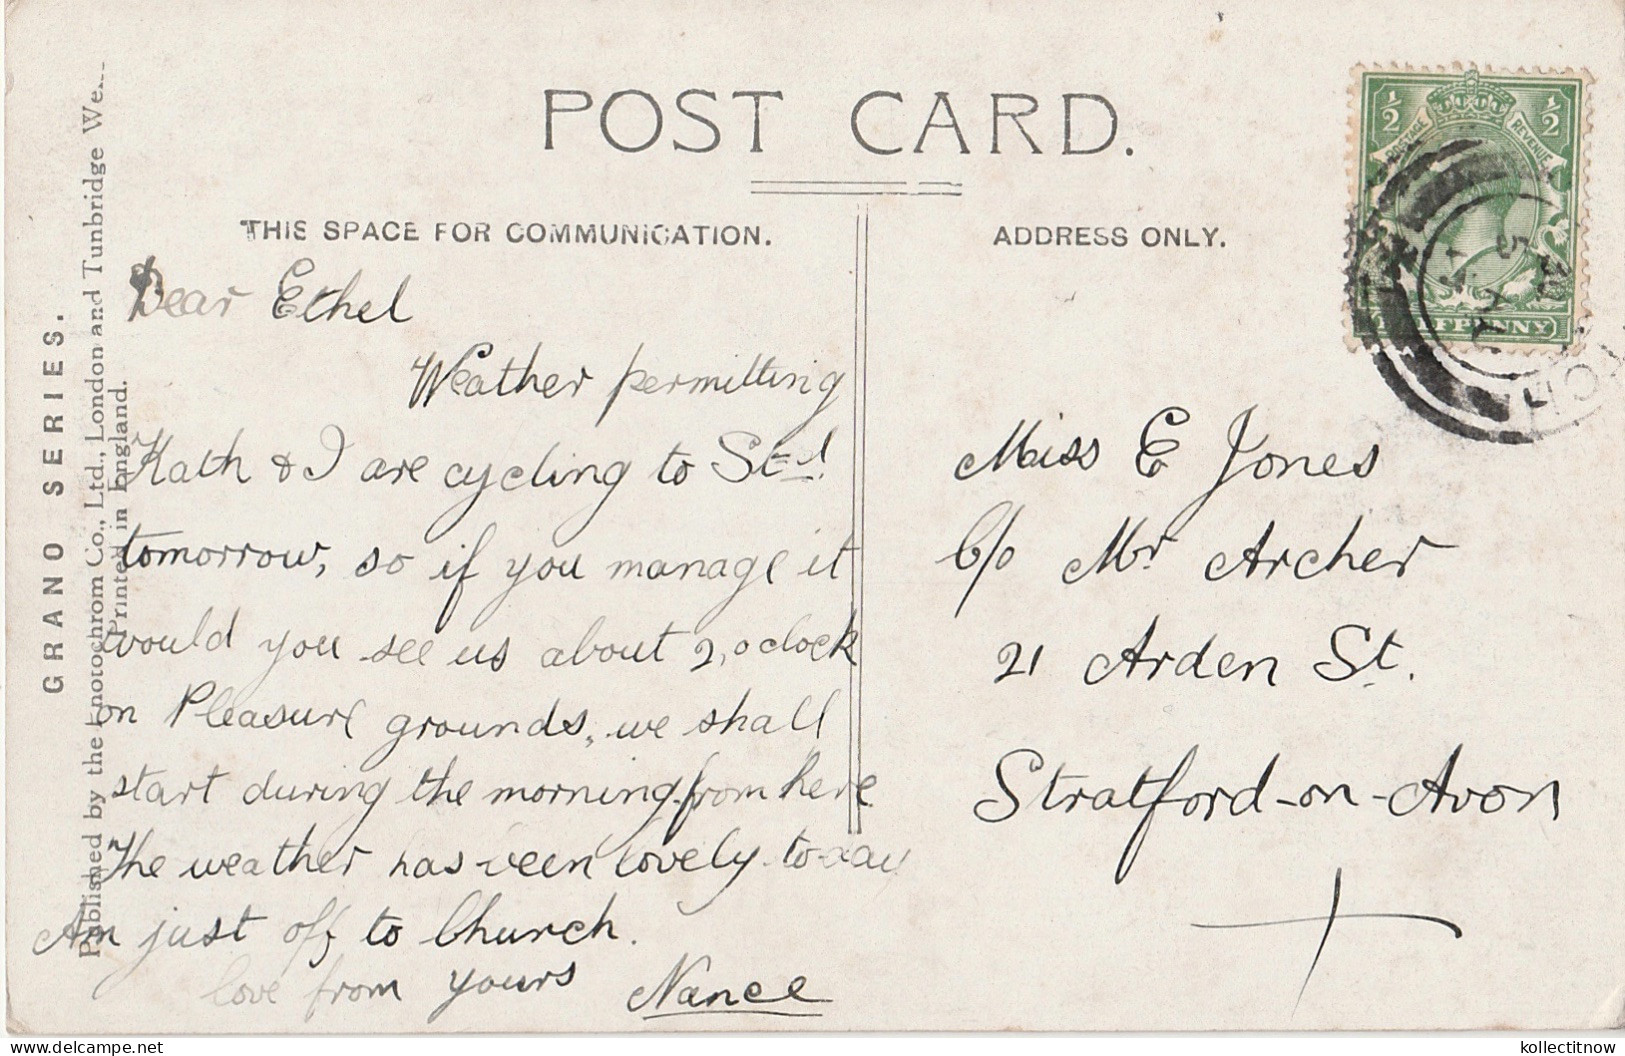 POST CARD.
THIS SPACE FOR COMMUNICATION.
ADDRESS ONLY.
GRANO SERIES.
Published by the Photochrom Co., Ltd., London and Tunbridge We
Printed in England.
Dear Ethel
Weather permitting
Kath & I are cycling to St-d.
tomorrow, so if you manage it
would you see us about 2,oclock
on Pleasure grounds, we shall
start during the morning from here
The weather has been lovely to-day
Am just off to Church.
love from yours Nance
Miss E Jones
C/o Mr Archer
21 Arden St.
Stratford-on-Avon
½ ½
POSTAGE REVENUE
HALFPENNY
kollectitnow